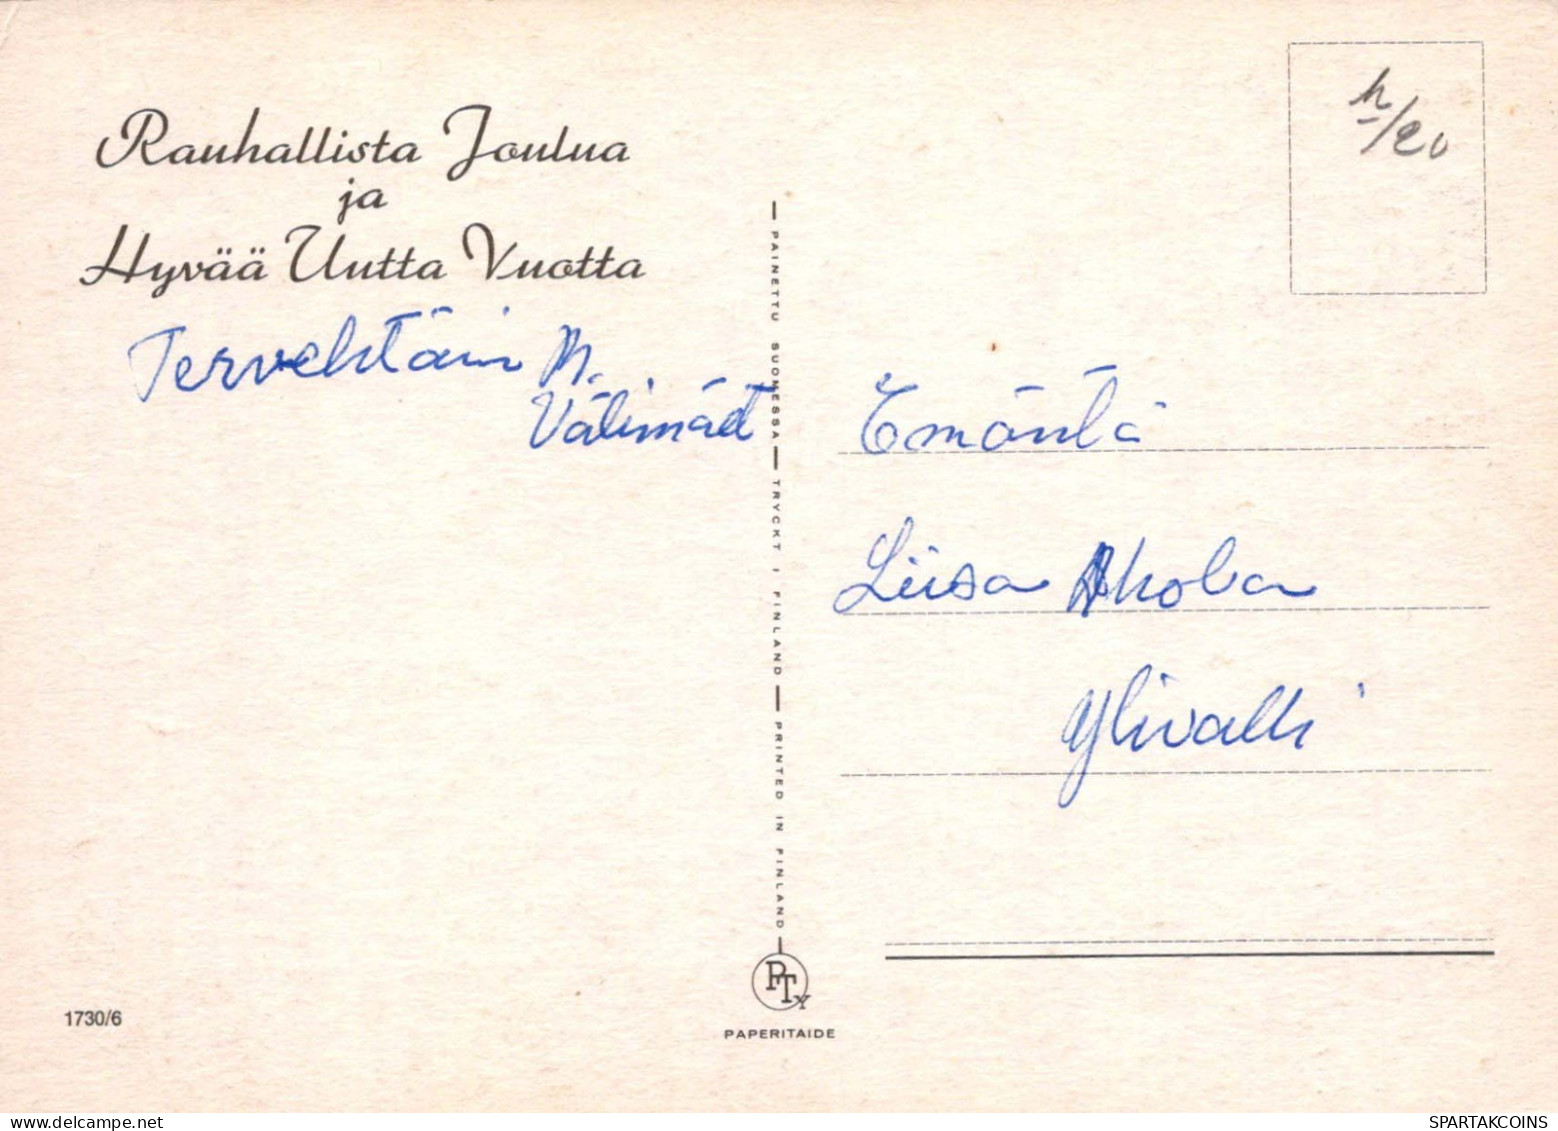 Rauhallista Joulua
ja
Hyvää Uutta Vuotta
Tervehtäin M.
Välimäet
PAINETTU SUOMESSA — TRYCKT I FINLAND — PRINTED IN FINLAND
Emäntä
Liisa Ahola
Ylivalli
PTY
PAPERITAIDE
1730/6
delcampe.net
SPARTAKCOINS